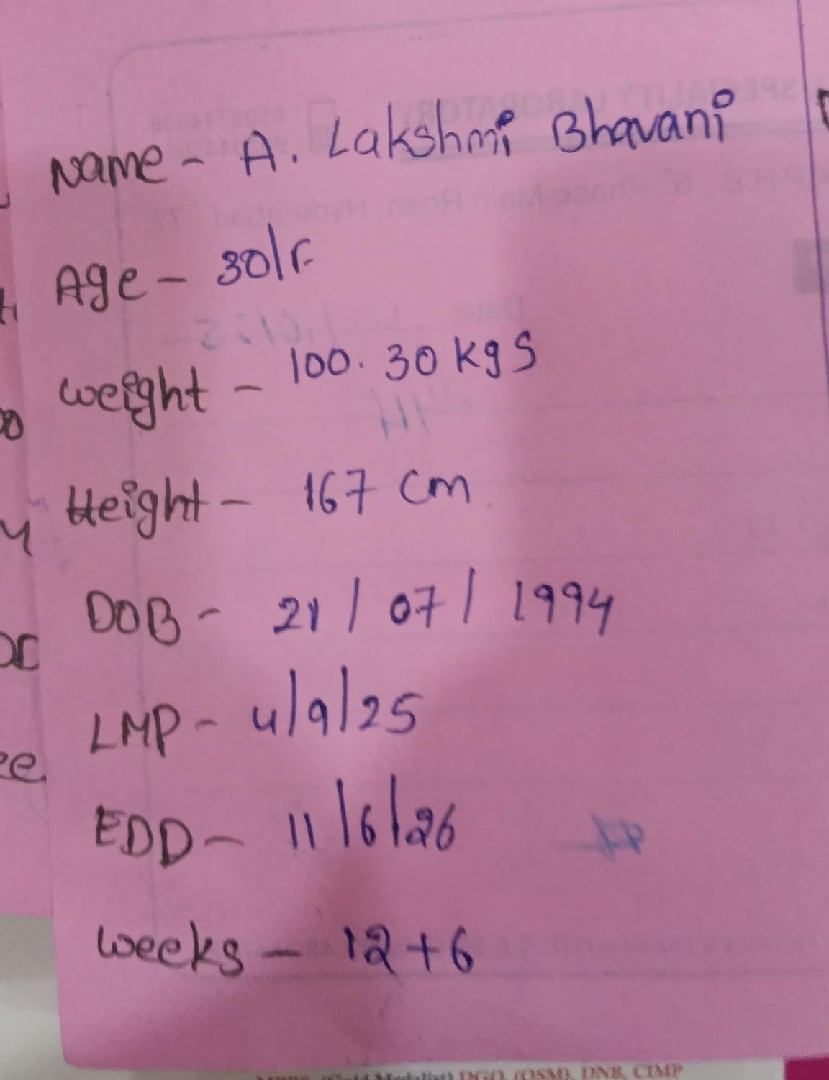 Name - A. Lakshmi Bhavani
Age - 30/F
Weight - 100.30 kgs
Height - 167 cm
DOB - 21/07/1994
LMP - 4/9/25
EDD - 11/6/26
Weeks - 12+6
DGO, (OSM), DNB, CIMP